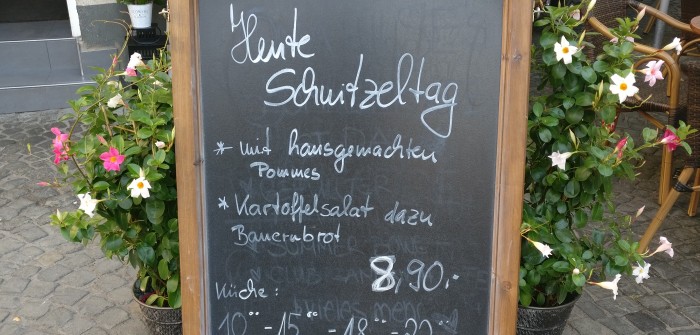 Heute
Schnitzeltag
* mit hausgemachten
Pommes
* Kartoffelsalat dazu
Bauernbrot
8,90.-
Küche:
10°° - 15°° - 18°° - 20°°